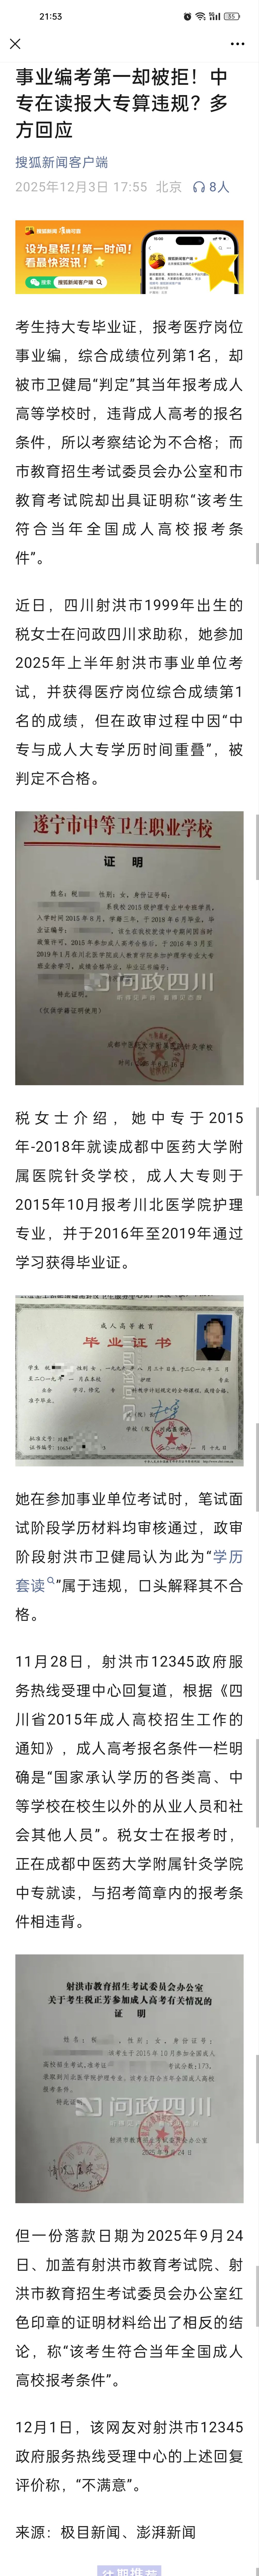 21:53
事业编考第一却被拒！中
专在读报大专算违规？多
方回应
搜狐新闻客户端
2025年12月3日 17:55 北京 8人
设为星标！！第一时间！
看最快资讯！
微信 搜狐新闻客户端
考生持大专毕业证，报考医疗岗位
事业编，综合成绩位列第1名，却
被市卫健局“判定”其当年报考成人
高等学校时，违背成人高考的报名
条件，所以考察结论为不合格；而
市教育招生考试委员会办公室和市
教育考试院却出具证明称“该考生
符合当年全国成人高校报考条
件”。
近日，四川射洪市1999年出生的
税女士在问政四川求助称，她参加
2025年上半年射洪市事业单位考
试，并获得医疗岗位综合成绩第1
名的成绩，但在政审过程中因“中
专与成人大专学历时间重叠”，被
判定不合格。
遂宁市中等卫生职业学校
证 明
问政四川
税女士介绍，她中专于2015
年-2018年就读成都中医药大学附
属医院针灸学校，成人大专则于
2015年10月报考川北医学院护理
专业，并于2016年至2019年通过
学习获得毕业证。
成人高等教育
毕业证书
她在参加事业单位考试时，笔试面
试阶段学历材料均审核通过，政审
阶段射洪市卫健局认为此为“学历
套读”属于违规，口头解释其不合
格。
11月28日，射洪市12345政府服
务热线受理中心回复道，根据《四
川省2015年成人高校招生工作的
通知》，成人高考报名条件一栏明
确是“国家承认学历的各类高、中
等学校在校生以外的从业人员和社
会其他人员”。税女士在报考时，
正在成都中医药大学附属针灸学院
中专就读，与招考简章内的报考条
件相违背。
射洪市教育招生考试委员会办公室
关于考生税正芳参加成人高考有关情况的
证 明
问政四川
但一份落款日期为2025年9月24
日、加盖有射洪市教育考试院、射
洪市教育招生考试委员会办公室红
色印章的证明材料给出了相反的结
论，称“该考生符合当年全国成人
高校报考条件”。
12月1日，该网友对射洪市12345
政府服务热线受理中心的上述回复
评价称，“不满意”。
来源：极目新闻、澎湃新闻
往期推荐